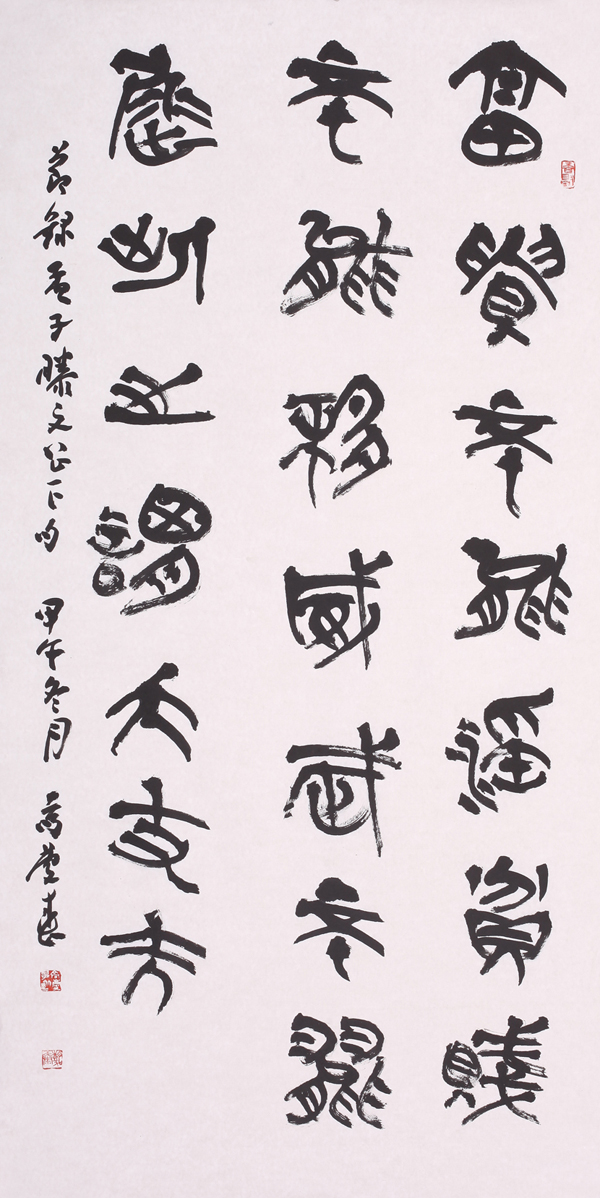 富貴不能淫貧賤
不能移威武不能
屈此之謂大丈夫
節録孟子滕文公下句 甲午冬月 高慶春